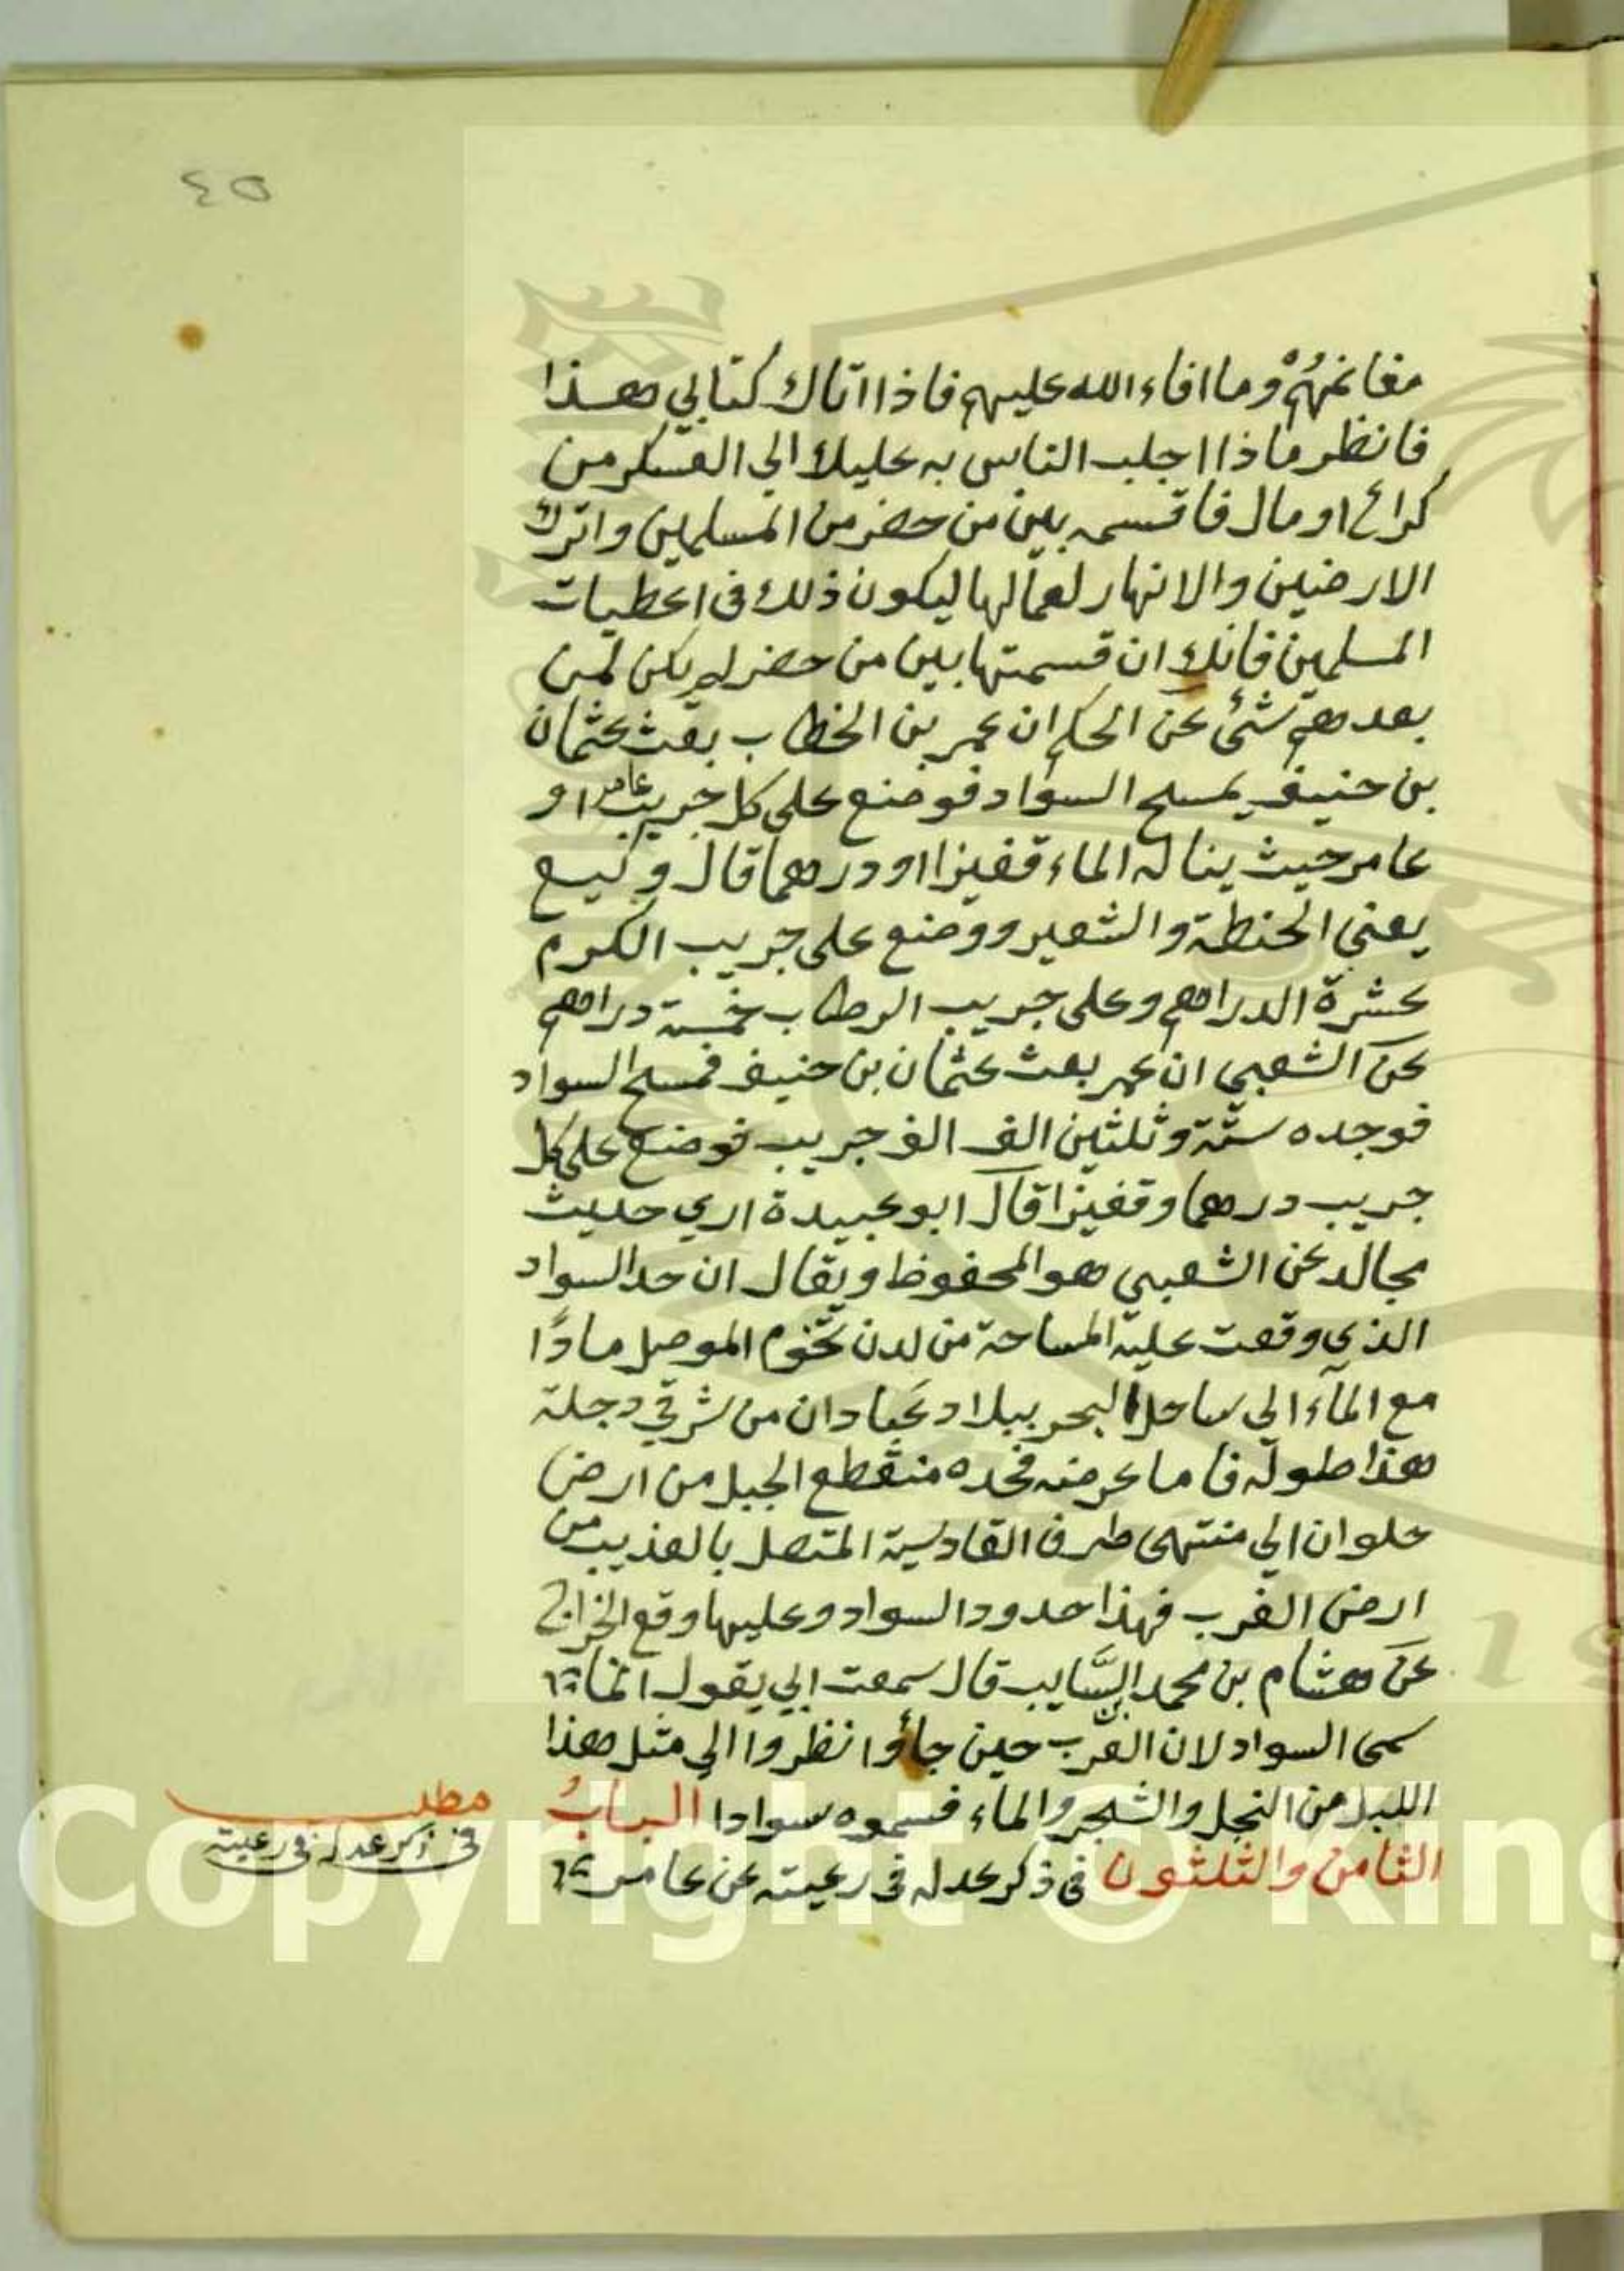 ٤٥
مغانمهم وما افاء الله عليهم فاذا اتاك كتابي هذا
فانظر ماذا اجلب الناس به عليك الي العسكر من
كراع او مال فاقسمه بين من حضر من المسلمين واترك
الارضين والانهار لعمالها ليكون ذلك في اعطيات
المسلمين فانك ان قسمتها بين من حضر لم يكن لمن
بعدهم شئ عن الحكم ان عمر بن الخطاب بعث عثمان
بن حنيف يمسح السواد فوضع على كل جريب عامر او
غامر حيث يناله الماء قفيزا او درهما قال وكيع
يعني الحنطة والشعير ووضع على جريب الكرم
عشرة الدراهم وعلى جريب الرطاب خمسة دراهم
عن الشعبي ان عمر بعث عثمان بن حنيف فمسح السواد
فوجده ستة وثلثين الف الف جريب فوضع على كل
جريب درهما وقفيزا قال ابو عبيدة اري حديث
مجالد عن الشعبي هو المحفوظ ويقال ان حد السواد
الذي وقعت عليه المساحة من لدن تخوم الموصل مادًا
مع المآء الي ساحل البحر ببلاد عبادان من شرقي دجلة
هذا طوله فاما عرضه فحده منقطع الجبل من ارض
حلوان الي منتهى طرف القادسية المتصل بالعذيب من
ارض العرب فهذا حدود السواد وعليها وقع الخراج
عن هشام بن محمد بن السَّايب قال سمعت ابي يقول انما
سمى السواد لان العرب حين جاؤا نظروا الي مثل هذا
الليل من النخل والشجر والماء فسموه سوادا البابُ
الثامن والثلثون في ذكر عدله في رعيته عن عامر
مطلب
في ذكر عدله في رعيته
Copyright © King